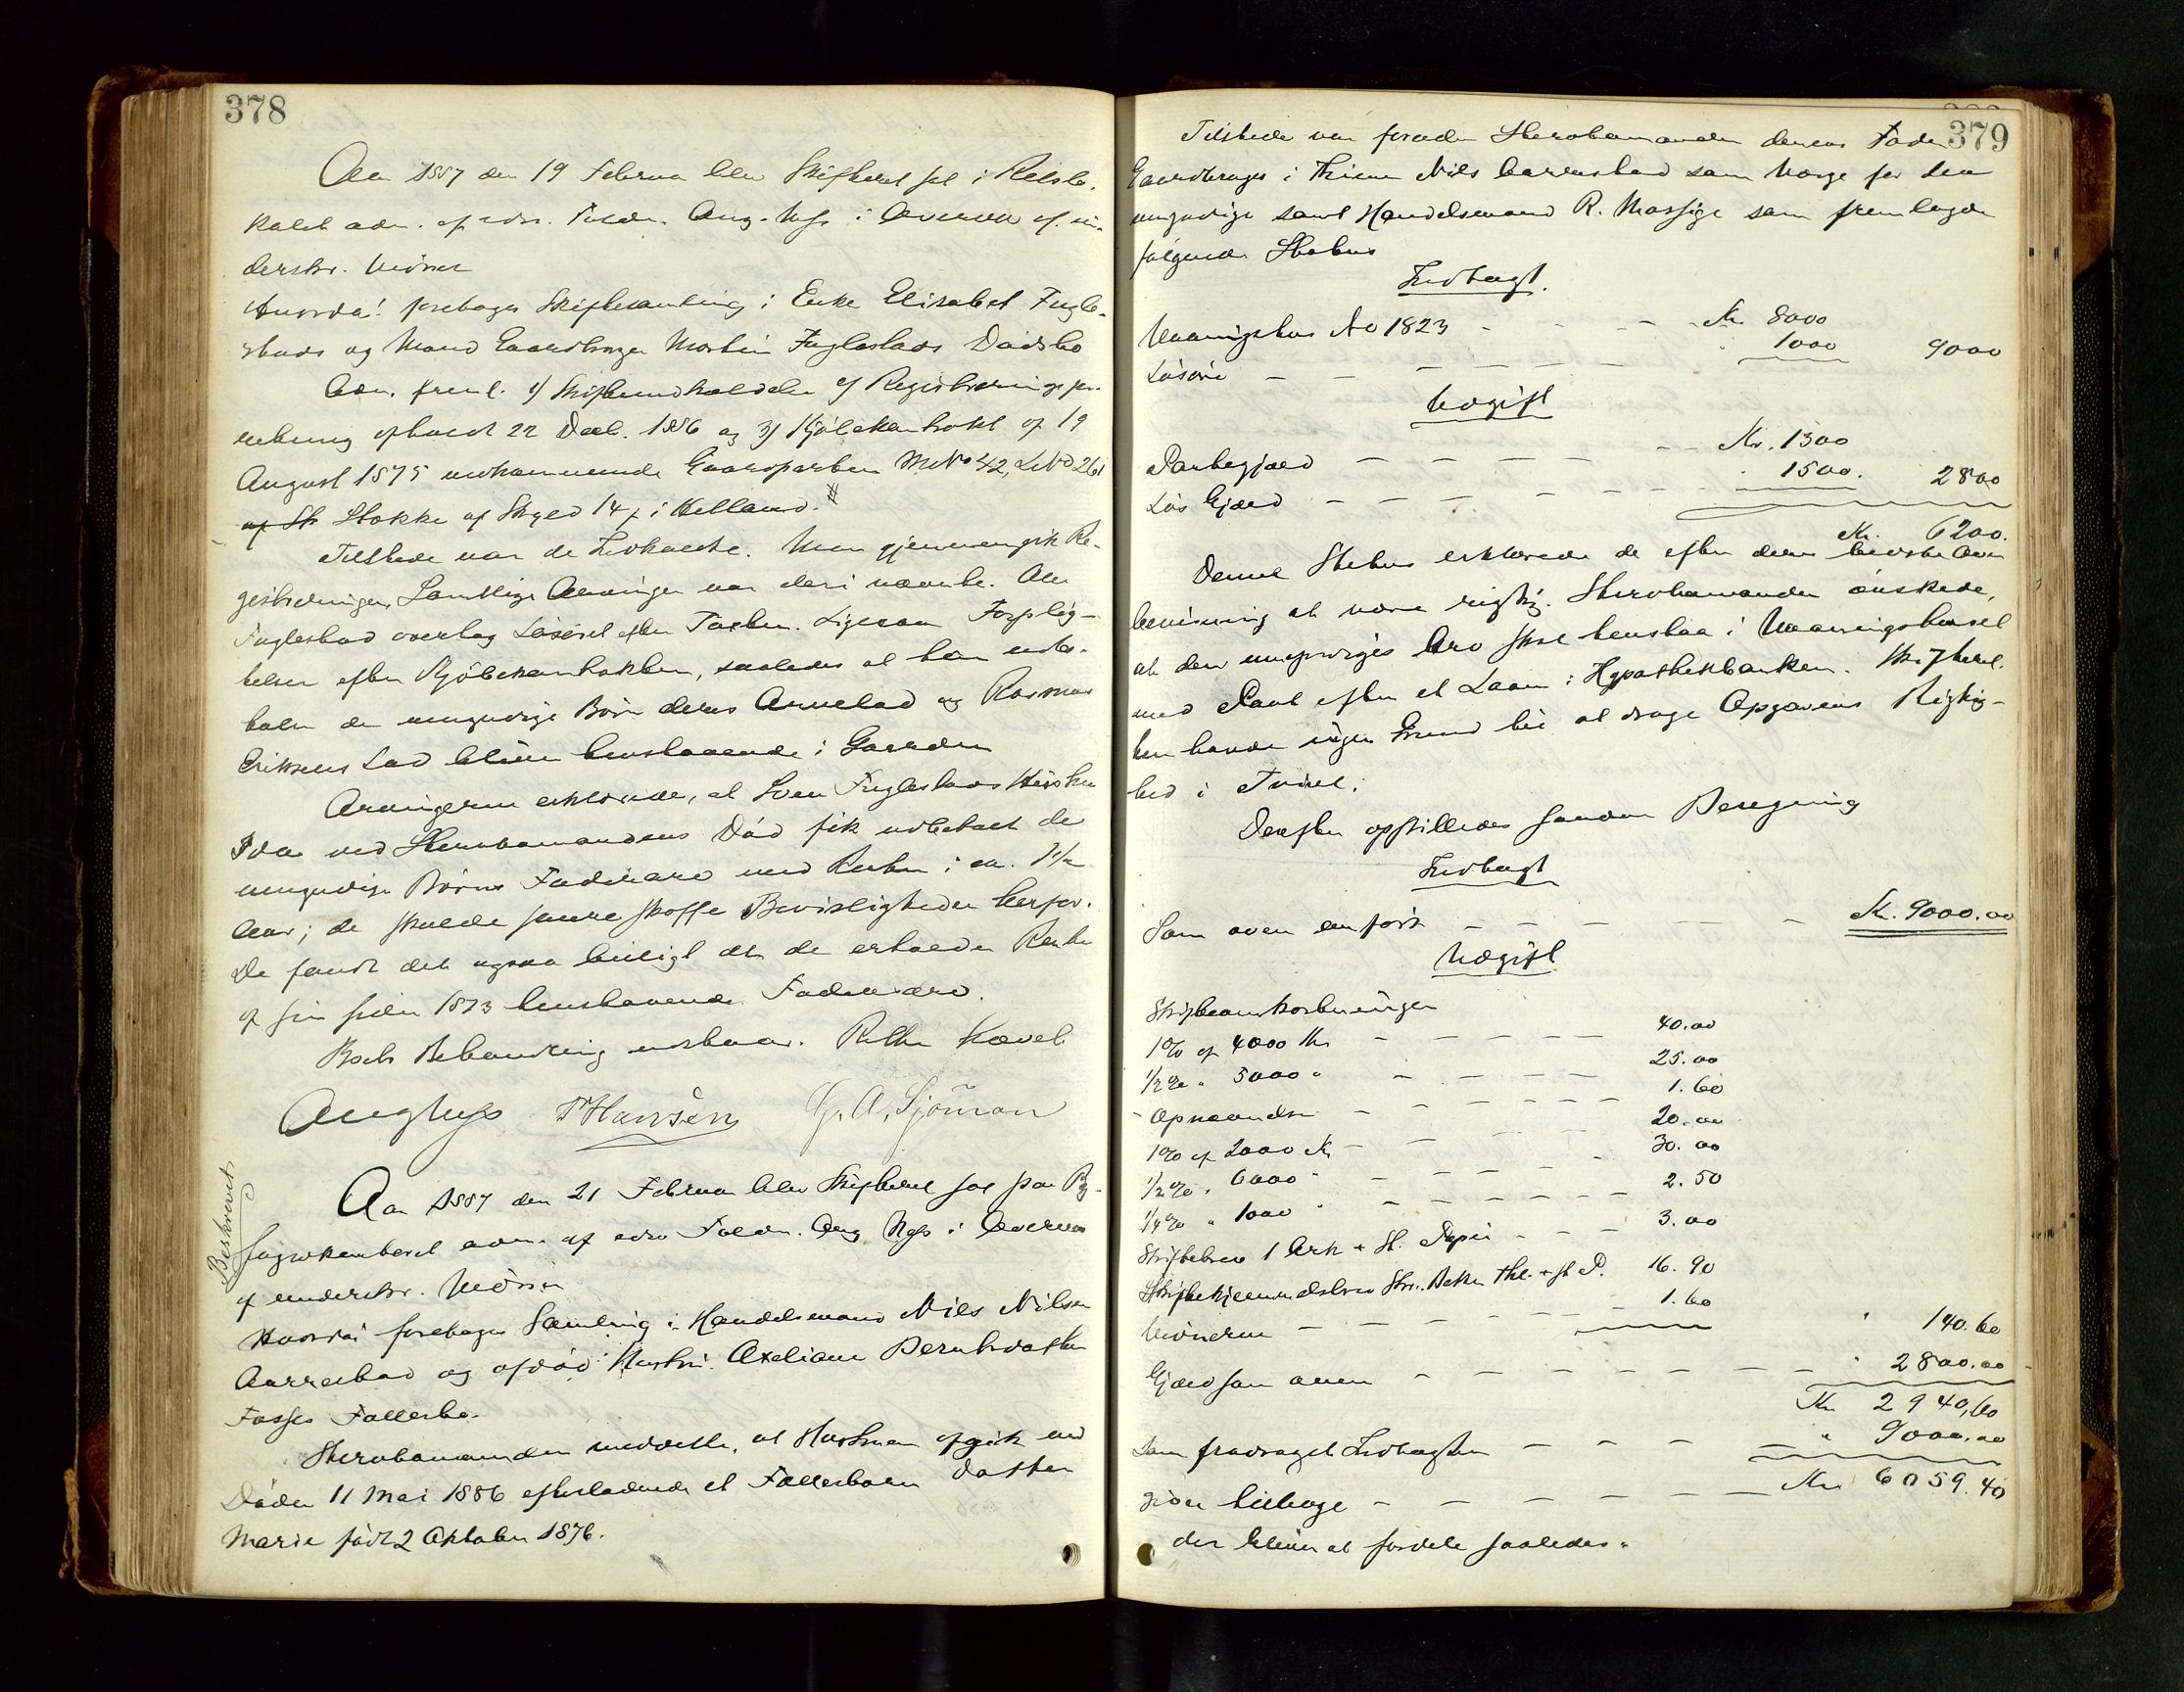 378
Aar 1887 den 19 Februar blev Skifteret sat i Reislo-
kalet adm. af edsv. Fuldm. Aug. i Overvær af un-
derskr. Vidner
Hvorda! foretages Skiftesamling i Enke Elisabet Fugle-
stads og Mand Gaardbruger Morten Fuglestads Dødsbo
Adm. freml. 1/ Skifteindkaldelse 2/ Registreringsfor-
retning afholdt 22 Decb. 1886 og 3/ Kjøbekontrakt af 19
August 1875 vedkommende Gaardparten MNo 42, LNo 261
Stokke af Skyld 14 i Helland.
Tilstede var de Indkaldte. Man gjennemgik Re-
gistreringen, Samtlige Arvinger var deri nævnte. Ole
Fuglestad overtog Løsøret efter Taxten. Ligesaa Forplig-
telser efter Kjøbekontrakten, saaledes at han udbe-
taler de umyndige Børn deres Arvelod og Rasmus
Eriksens Lod bliver henstaaende i Gaarden
Arvingerne erklærede, at Sven Fuglestads
ved Stervbomandens Død fik udbetalt de
umyndige Børns Fædrearv med Renter i ca. 1½
Aar; de skulde senere skaffe Bevisligheder herfor.
De fandt det ogsaa billigt at de erholder Rente
af sin siden 1873 henstaaende Fædrenearv.
Boets Behandling udstaar. Retten hævet
T Hansen G. A. Sjöman
Beskrevet
Aar 1887 den 21 Februar blev Skifteret sat paa By-
fogedkontoret adm. af edsv Fuldm. Aug i Overvær
af underskr. Vidner
Hvorda foretages Samling i Handelsmand Nils Nilsen
Aarrestad og afdød Hustru Axeliane Berntsdatter
Fosses Fællesbo.
Stervbomanden meddelte, at Hustruen afgik ved
Døden 11 Mai 1886 efterladende et Fællesbarn Datter
Marie født 2 Oktober 1876.
379
Tilstede var foruden Stervbomanden dennes Fader
Gaardbruger i Thime Nils Aarrestad som Værge for den
umyndige samt Handelsmand R. Massige som fremlagde
følgende Status
Indtægt.
Vaaningshus No 1823 - - - - Kr. 8000
Løsøre - - - - - " 1000 9000
Udgift
Pantegjæld - - - - - Kr. 1300
Løs Gjæld - - - - - " 1500. 2800
Kr. 6200.
Denne Status erklærede de efter deres bedste Over
bevisning at være rigtig. Stervbomanden ønskede,
at den umyndiges Arv skal henstaa i Vaaningshuset
med Pant efter et Laan i Hypothekbanken. Skifteret-
ten havde ingen Grund til at drage Opgavens Rigtig-
hed i Tvivl.
Derefter opstilledes saadan Beregning
Indtægt
Som oven anført - - - - - Kr. 9000.00
Udgift
Skifteomkostninger
1% af 4000 Kr - - - - 40.00
1/2% " 5000 " - - - - 25.00
Opnævnelse - - - - 1.60
1% af 2000 Kr - - - - 20.00
1/2% " 6000 " - - - - 30.00
1/4% " 1000 " - - - - 2.50
Skiftebrev 1 Ark + St. Papir - - 3.00
Skr. + St P. 16.90
Vidnerne - - - - - 1.60 " 140.60
Gjæld som oven - - - - - " 2800.00
Kr 2940,60
som fradraget Indtægten - - - - " 9000.00
giver tilbage - - - - - Kr 6059.40
der bliver at fordele saaledes.